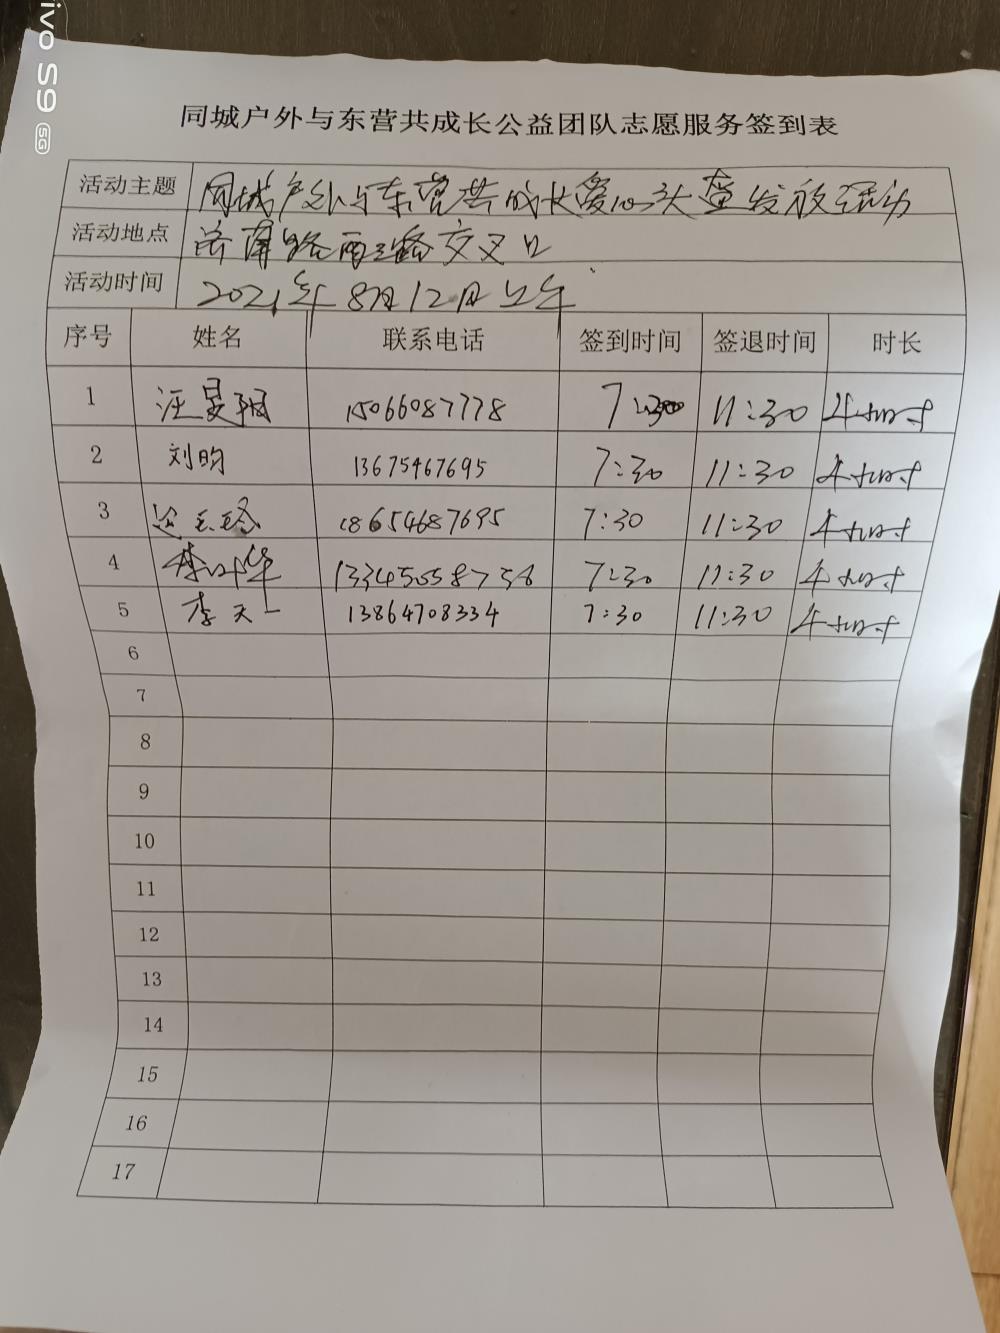 vivo S9 5G
同城户外与东营共成长公益团队志愿服务签到表
活动主题 同城户外与东营共成长爱心头盔发放活动
活动地点 路西三路交叉口
活动时间 2021年8月12日上午
序号 姓名 联系电话 签到时间 签退时间 时长
1 汪昊翔 15066087778 7:30 11:30 4小时
2 刘昀 13675467695 7:30 11:30 4小时
3 18654687695 7:30 11:30 4小时
4 李叶华 13345058756 7:30 11:30 4小时
5 李天一 13864708334 7:30 11:30 4小时
6
7
8
9
10
11
12
13
14
15
16
17